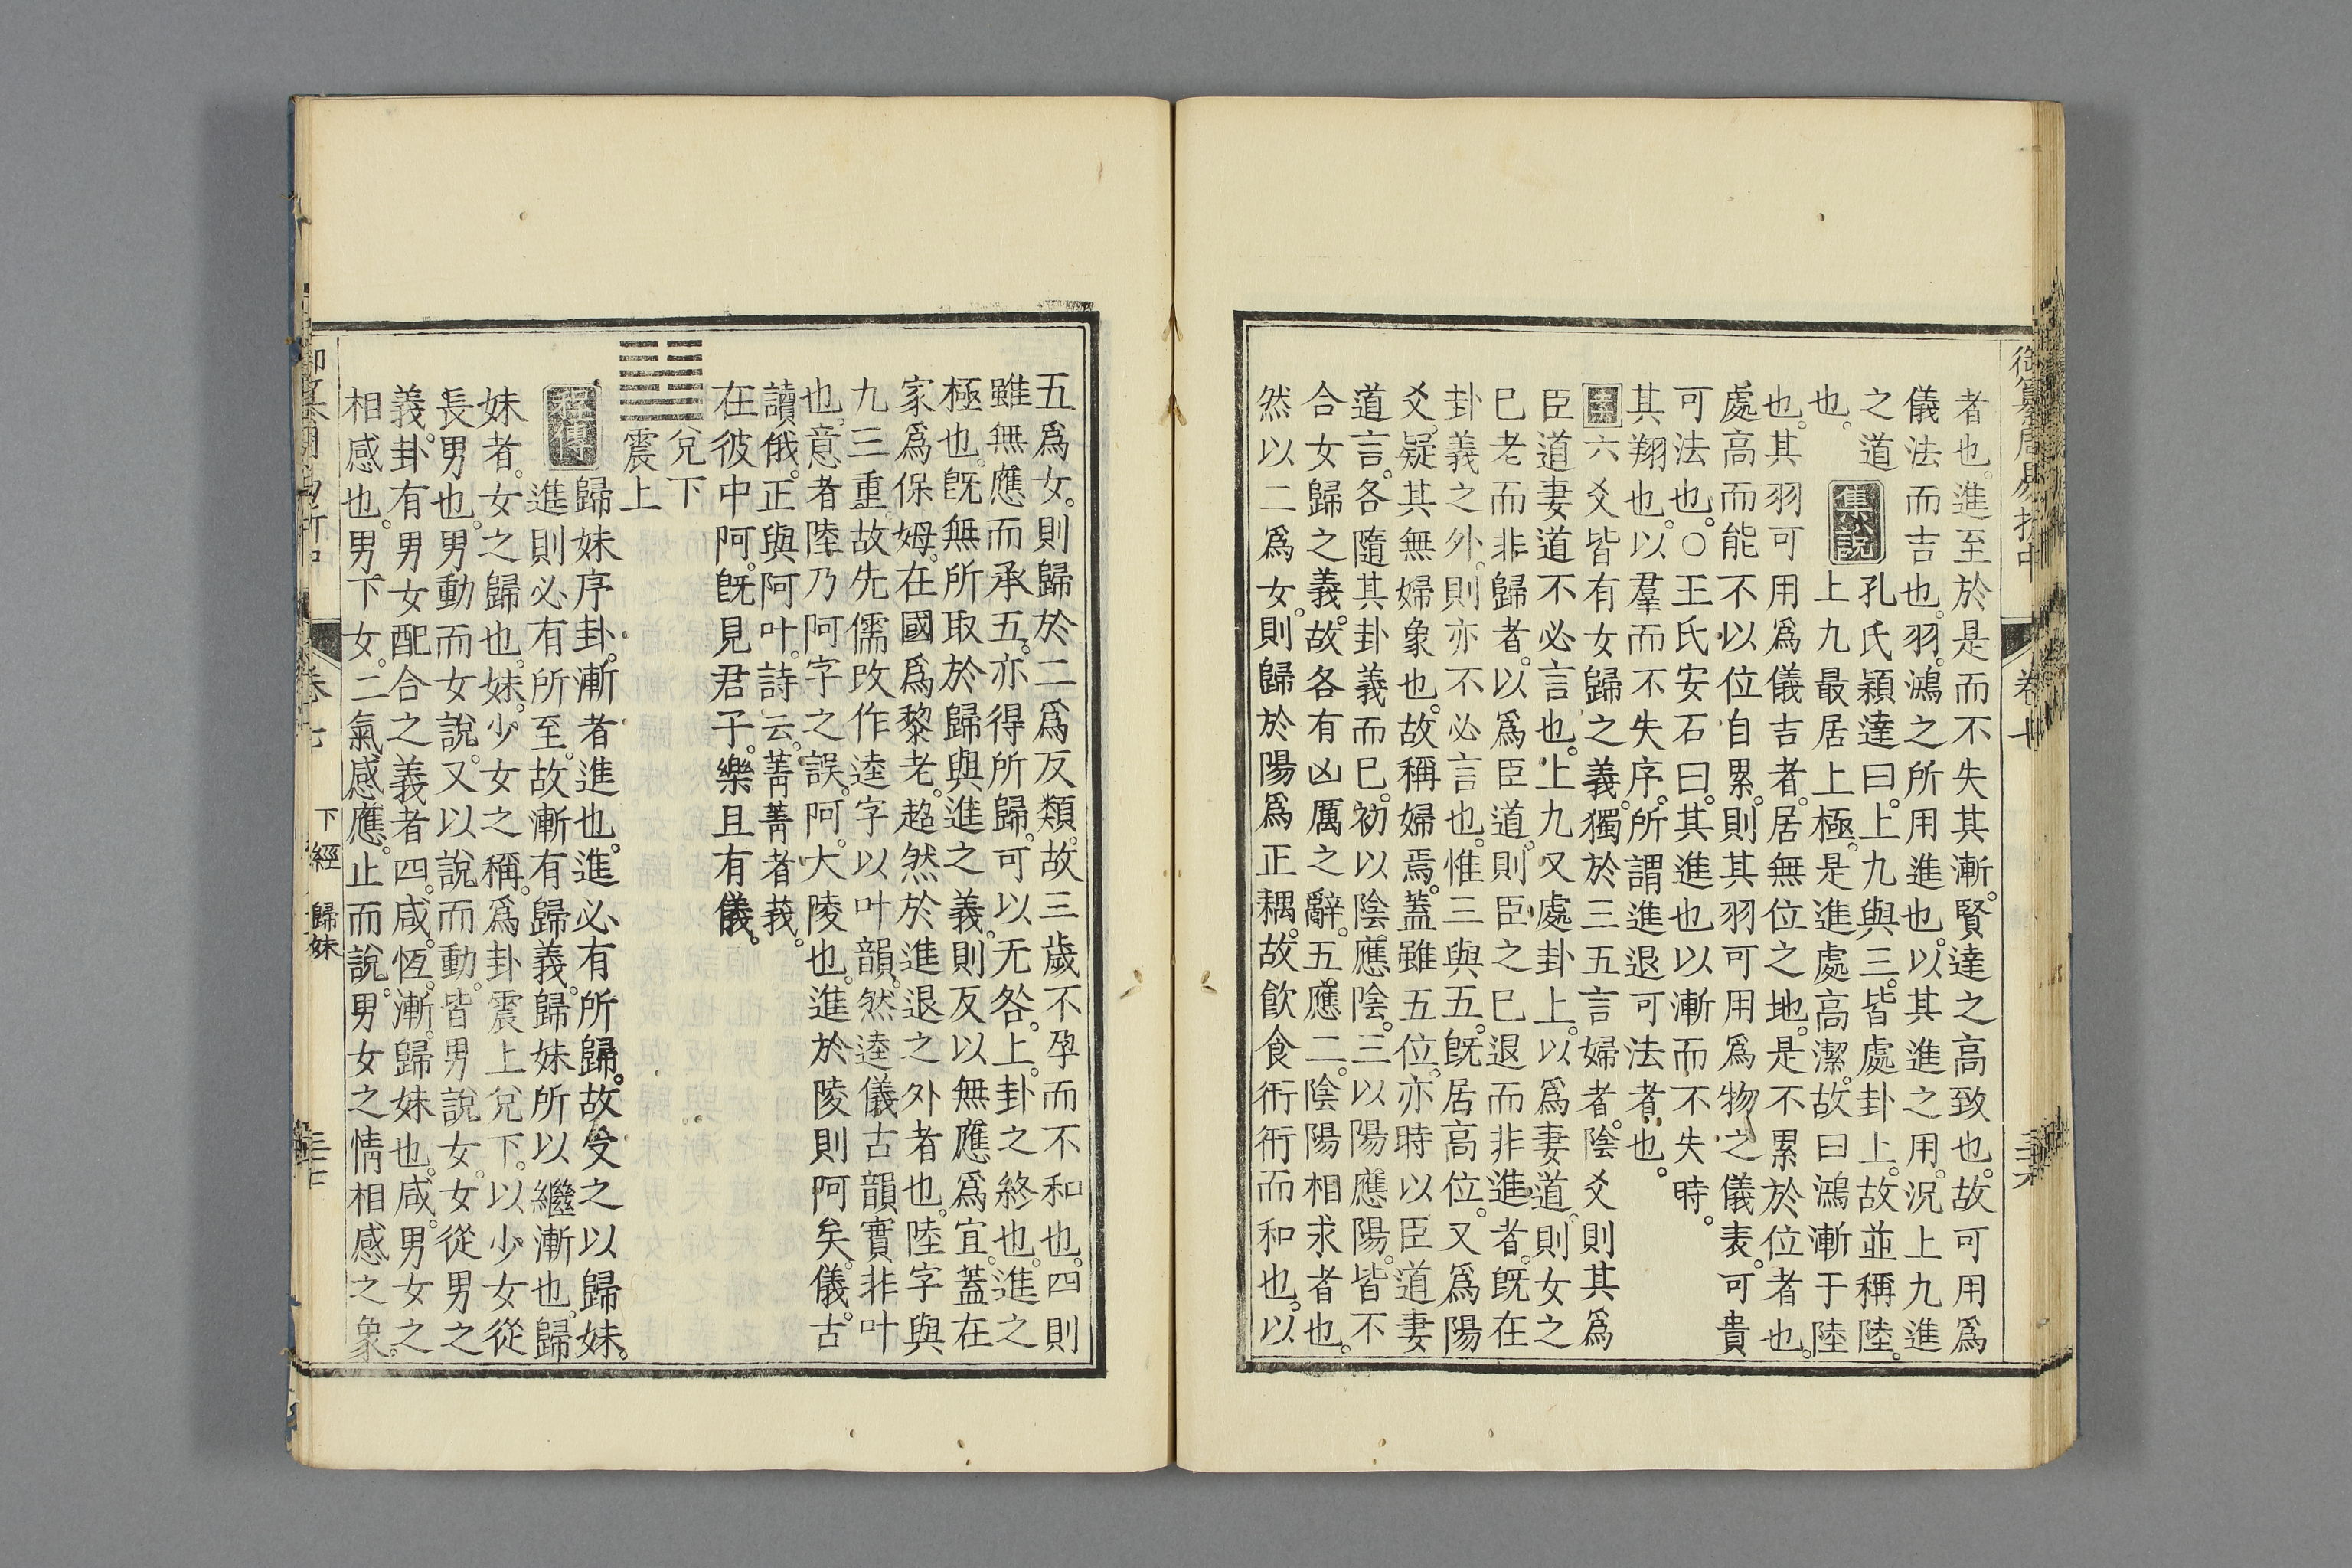 御纂周易折中 卷七 三十六
者也。進至於是而不失其漸。賢達之高致也。故可用爲
儀法而吉也。羽。鴻之所用進也。以其進之用。況上九進
之道
也。
集說
孔氏穎達曰。上九與三。皆處卦上。故並稱陸。
上九最居上極。是進處高潔。故曰鴻漸于陸
也。其羽可用爲儀吉者。居無位之地。是不累於位者也。
處高而能不以位自累。則其羽可用爲物之儀表。可貴
可法也。○王氏安石曰。其進也以漸而不失時。
其翔也。以羣而不失序。所謂進退可法者也。
案六爻皆有女歸之義。獨於三五言婦者。陰爻則其爲
臣道妻道不必言也。上九又處卦上。以爲妻道。則女之
已老而非歸者。以爲臣道。則臣之已退而非進者。旣在
卦義之外。則亦不必言也。惟三與五。旣居高位。又爲陽
爻。疑其無婦象也。故稱婦焉。蓋雖五位。亦時以臣道妻
道言。各隨其卦義而已。初以陰應陰。三以陽應陽。皆不
合女歸之義。故各有凶厲之辭。五應二。陰陽相求者也。
然以二爲女。則歸於陽爲正耦。故飲食衎衎而和也。以
五爲女。則歸於二爲反類。故三歲不孕而不和也。四則
雖無應而承五。亦得所歸。可以无咎。上。卦之終也。進之
極也。旣無所取於歸與進之義。則反以無應爲宜。蓋在
家爲保姆。在國爲黎老。超然於進退之外者也。陸字與
九三重。故先儒改作逵字以叶韻。然逵儀古韻實非叶
也。意者陸乃阿字之誤。阿。大陵也。進於陵則阿矣。儀。古
讀俄。正與阿叶。詩云。菁菁者莪。
在彼中阿。旣見君子。樂且有儀。
兌下
震上
程傳
歸妹序卦。漸者進也。進必有所歸。故受之以歸妹。
進則必有所至。故漸有歸義。歸妹所以繼漸也。歸
妹者。女之歸也。妹。少女之稱。爲卦震上兌下。以少女從
長男也。男動而女說。又以說而動。皆男說女。女從男之
義。卦有男女配合之義者四。咸。恆。漸。歸妹也。咸。男女之
相感也。男下女。二氣感應。止而說。男女之情相感之象。
卷七 下經 歸妹 三十七